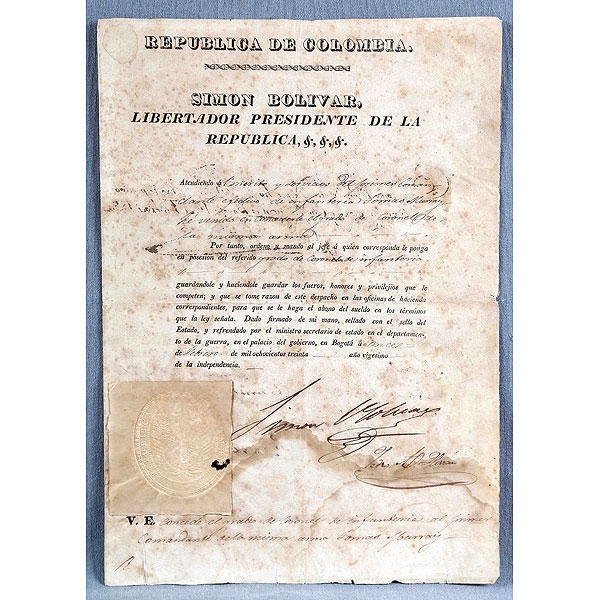 REPUBLICA DE COLOMBIA.
SIMON BOLIVAR,
LIBERTADOR PRESIDENTE DE LA
REPUBLICA, &, &, &.
Atendiendo á l merito y servicios del primer Coman
dante efectivo de infanteria Tomas Murray
he venido en concederle el grado de Coronel de
la misma arma
Por tanto, ordeno y mando al jefe á quien corresponda le ponga
en posesion del referido grado de Coronel de infanteria
guardandole y haciendole guardar los fueros, honores y privilejios que le
competen; y que se tome razon de este despacho en las oficinas de hacienda
correspondientes, para que se le haga el abono del sueldo en los términos
que la ley señala. Dado firmado de mi mano, sellado con el sello del
Estado, y refrendado por el ministro secretario de estado en el departamen-
to de la guerra, en el palacio del gobierno, en Bogotá á
de febrero de mil ochocientos treinta año vigesimo
de la independencia.
Simon Bolivar
V. E. concede el grado de Coronel de infanteria al primer
Comandante de la misma arma Tomas Murray